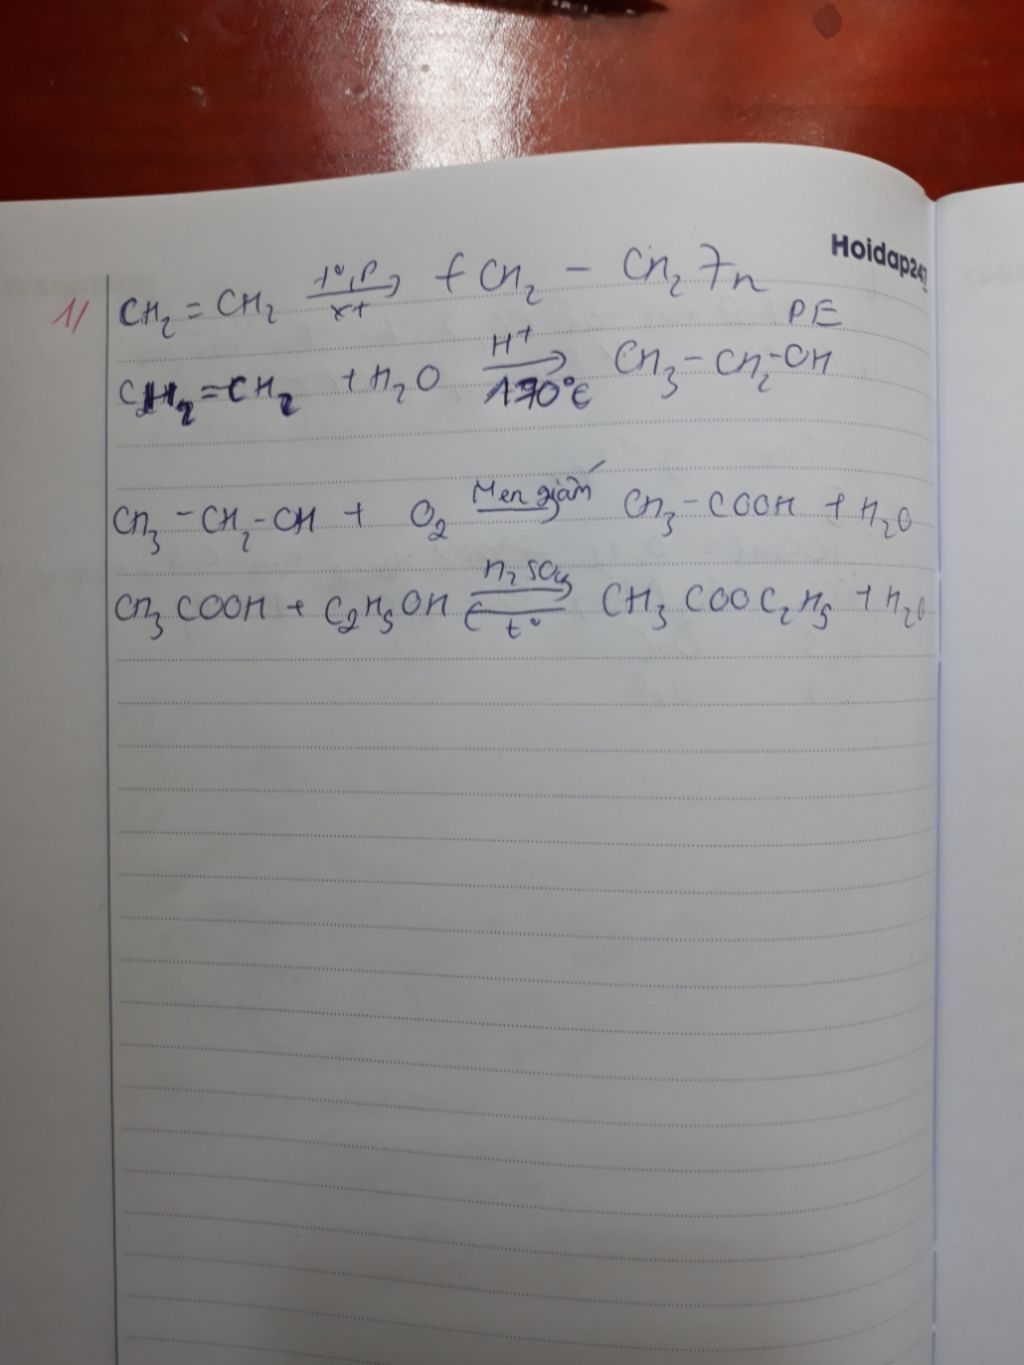 Hoidap247
1/ CH₂ = CH₂ →(t°, P / xt) (CH₂ – CH₂)n
PE
CH₂=CH₂ + H₂O →(H⁺ / 170°C) CH₃ – CH₂-OH
CH₃ – CH₂ – OH + O₂ →(Men giấm) CH₃ – COOH + H₂O
CH₃COOH + C₂H₅OH ⇌(H₂SO₄ / t°) CH₃COOC₂H₅ + H₂O